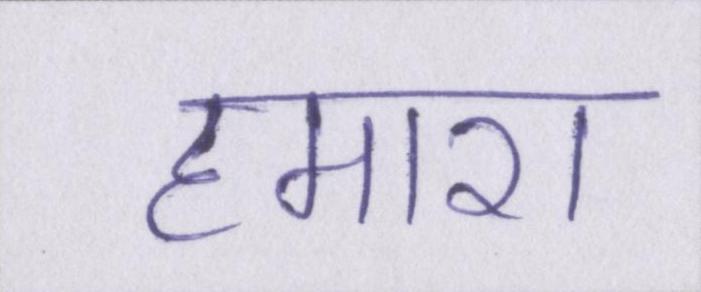 हमारा